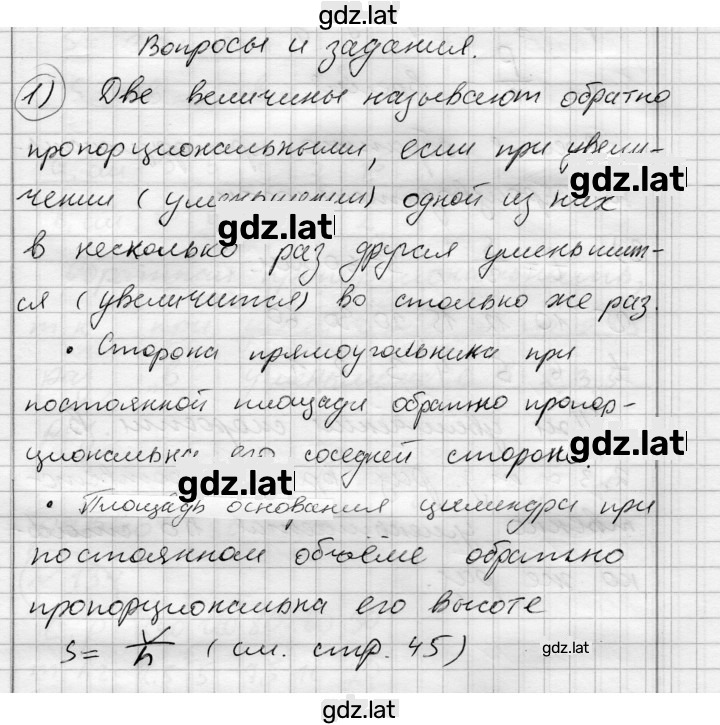 gdz.lat
Вопросы и задания.
1) Две величины называют обратно
пропорциональными, если при увели-
gdz.lat
чении (уменьшении) одной из них
gdz.lat
в несколько раз другая уменьшит-
ся (увеличится) во столько же раз.
• Сторона прямоугольника при
постоянной площади обратно пропор-
gdz.lat
циональна его соседней стороне.
gdz.lat
• Площадь основания цилиндра при
постоянном объёме обратно
пропорциональна его высоте
S = V/h (см. стр. 45)
gdz.lat
gdz.lat